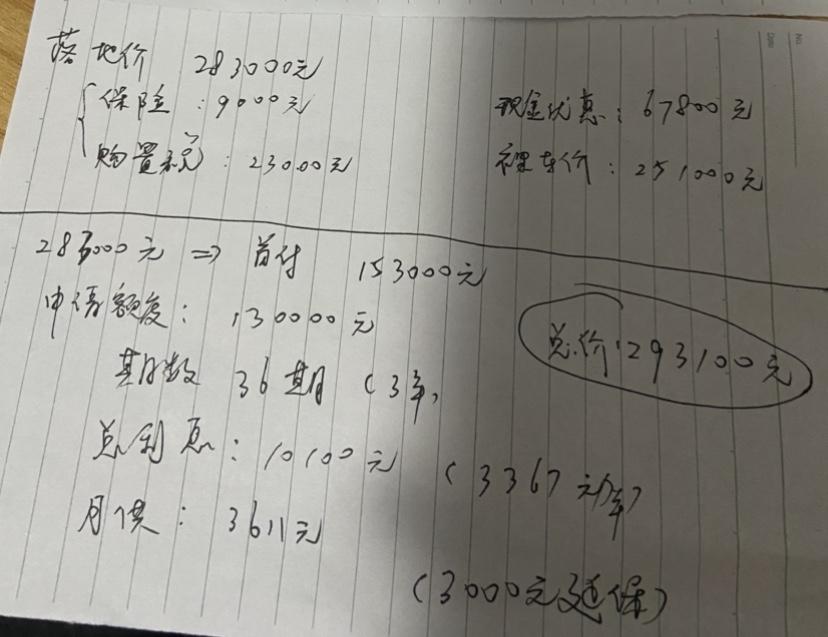 落地价 283000元
保险：9000元
购置税：23000元
现金优惠：67800元
裸车价：251000元
283000元 ⇒ 首付 153000元
申请额度：130000元
期数 36期（3年）
总利息：10100元（3367元/年）
月供：3611元
总价：293100元
（3000元延保）